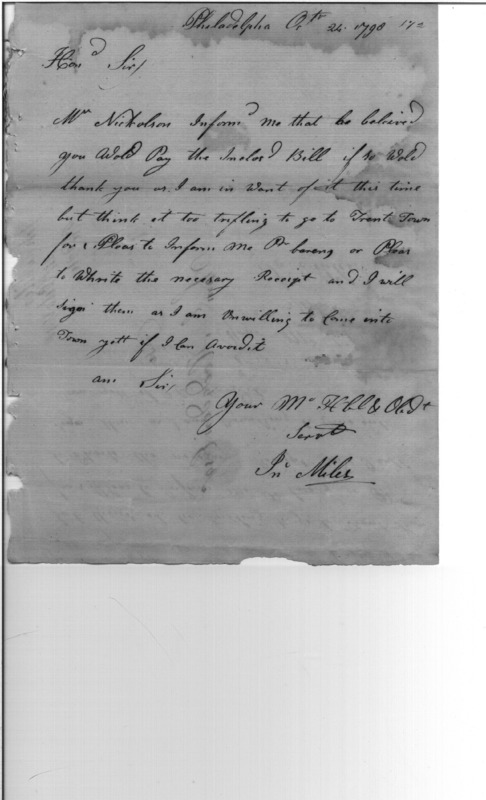 Philadelpha Octr 24. 1798 172
Hond Sir/
Mr Nickolson Informd me that he beleived
you Wold Pay the Inclosd Bill if so Wold
thank you as I am in Want of it this time
but think it too trifling to go to Trent Town
for, Pleas to Inform me Pr or Pleas
to Whrite the necesary Receipt and I will
sign them as I am Unwilling to Come into
Town yett if I Can Avoid it
am Sir/
Your Mo Hbl & Obdt
Servt
Jno Miles